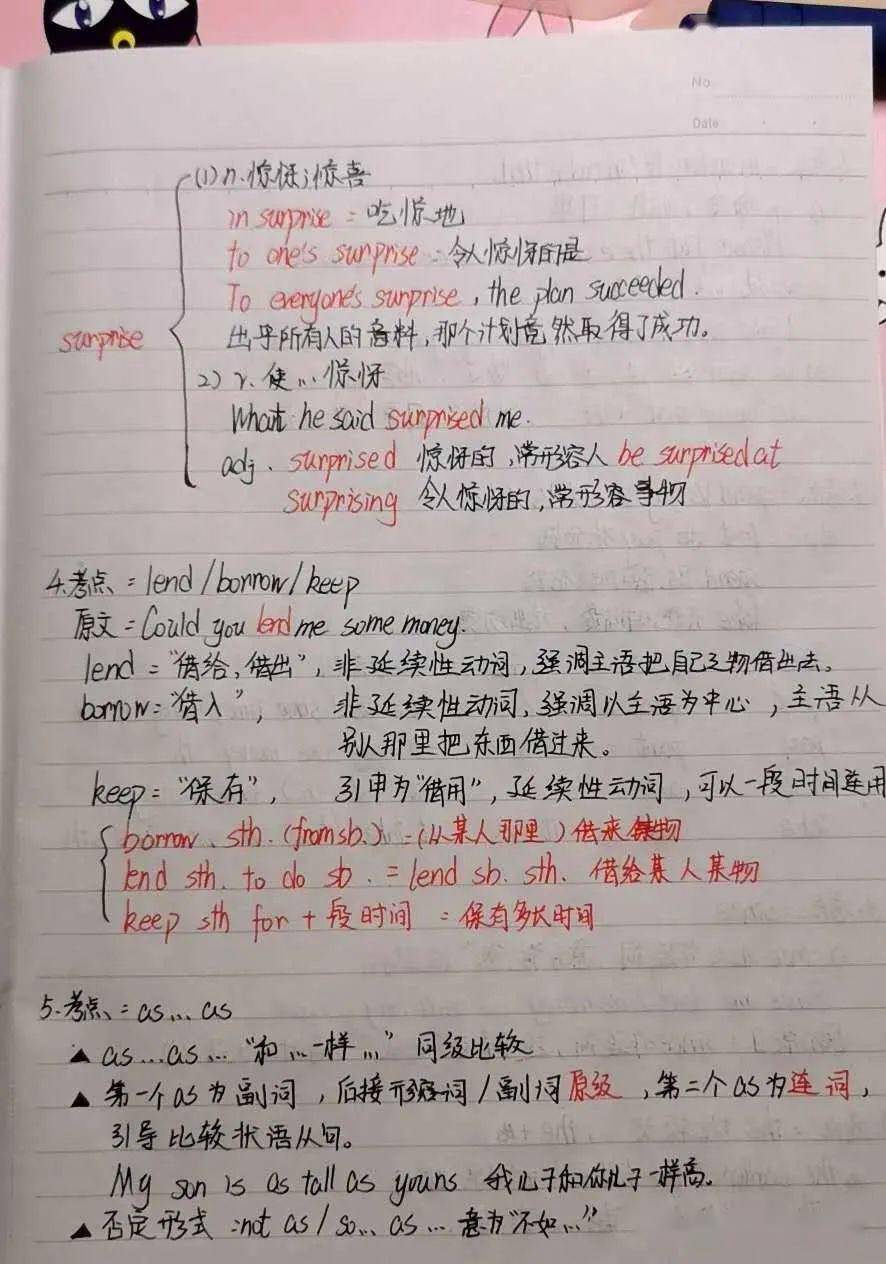 No
Date
(1) n. 惊讶;惊喜
in surprise : 吃惊地
to one's surprise : 令人惊讶的是
To everyone's surprise , the plan succeeded .
surprise
出乎所有人的意料, 那个计划竟然取得了成功。
2) v. 使... 惊讶
What he said surprised me.
adj . surprised 惊讶的 ,常形容人 be surprised at
surprising 令人惊讶的 ,常形容事物
4.考点 = lend / borrow / keep
原文 = Could you lend me some money.
lend = "借给, 借出" , 非延续性动词 , 强调主语把自己之物借出去。
borrow = "借入" , 非延续性动词 , 强调以主语为中心 , 主语从
别人那里把东西借过来。
keep = "保有" , 引申为"借用" , 延续性动词 , 可以一段时间连用
borrow . sth. (from sb.) = (从某人那里) 借来某物
lend sth. to do sb . = lend sb. sth. 借给某人某物
keep sth for + 段时间 = 保有多长时间
5.考点 = as ... as
▲ as ... as ... "和 ... 一样 ..." 同级比较
▲ 第一个as为副词 , 后接形容词 / 副词原级 , 第二个as为连词 ,
引导比较状语从句。
My son is as tall as yours 我儿子和你儿子一样高。
▲ 否定形式 : not as / so ... as ... 意为"不如 ..."